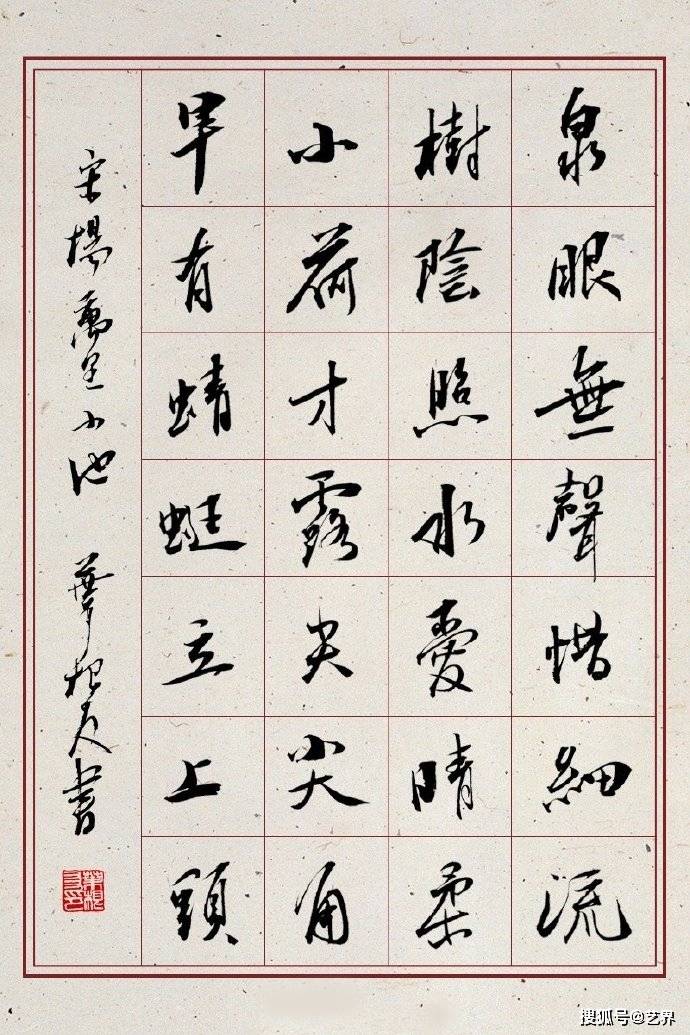 泉眼無聲惜細流
樹陰照水愛晴柔
小荷才露尖尖角
早有蜻蜓立上頭
宋楊萬里小池 華根友書
搜狐号@艺界